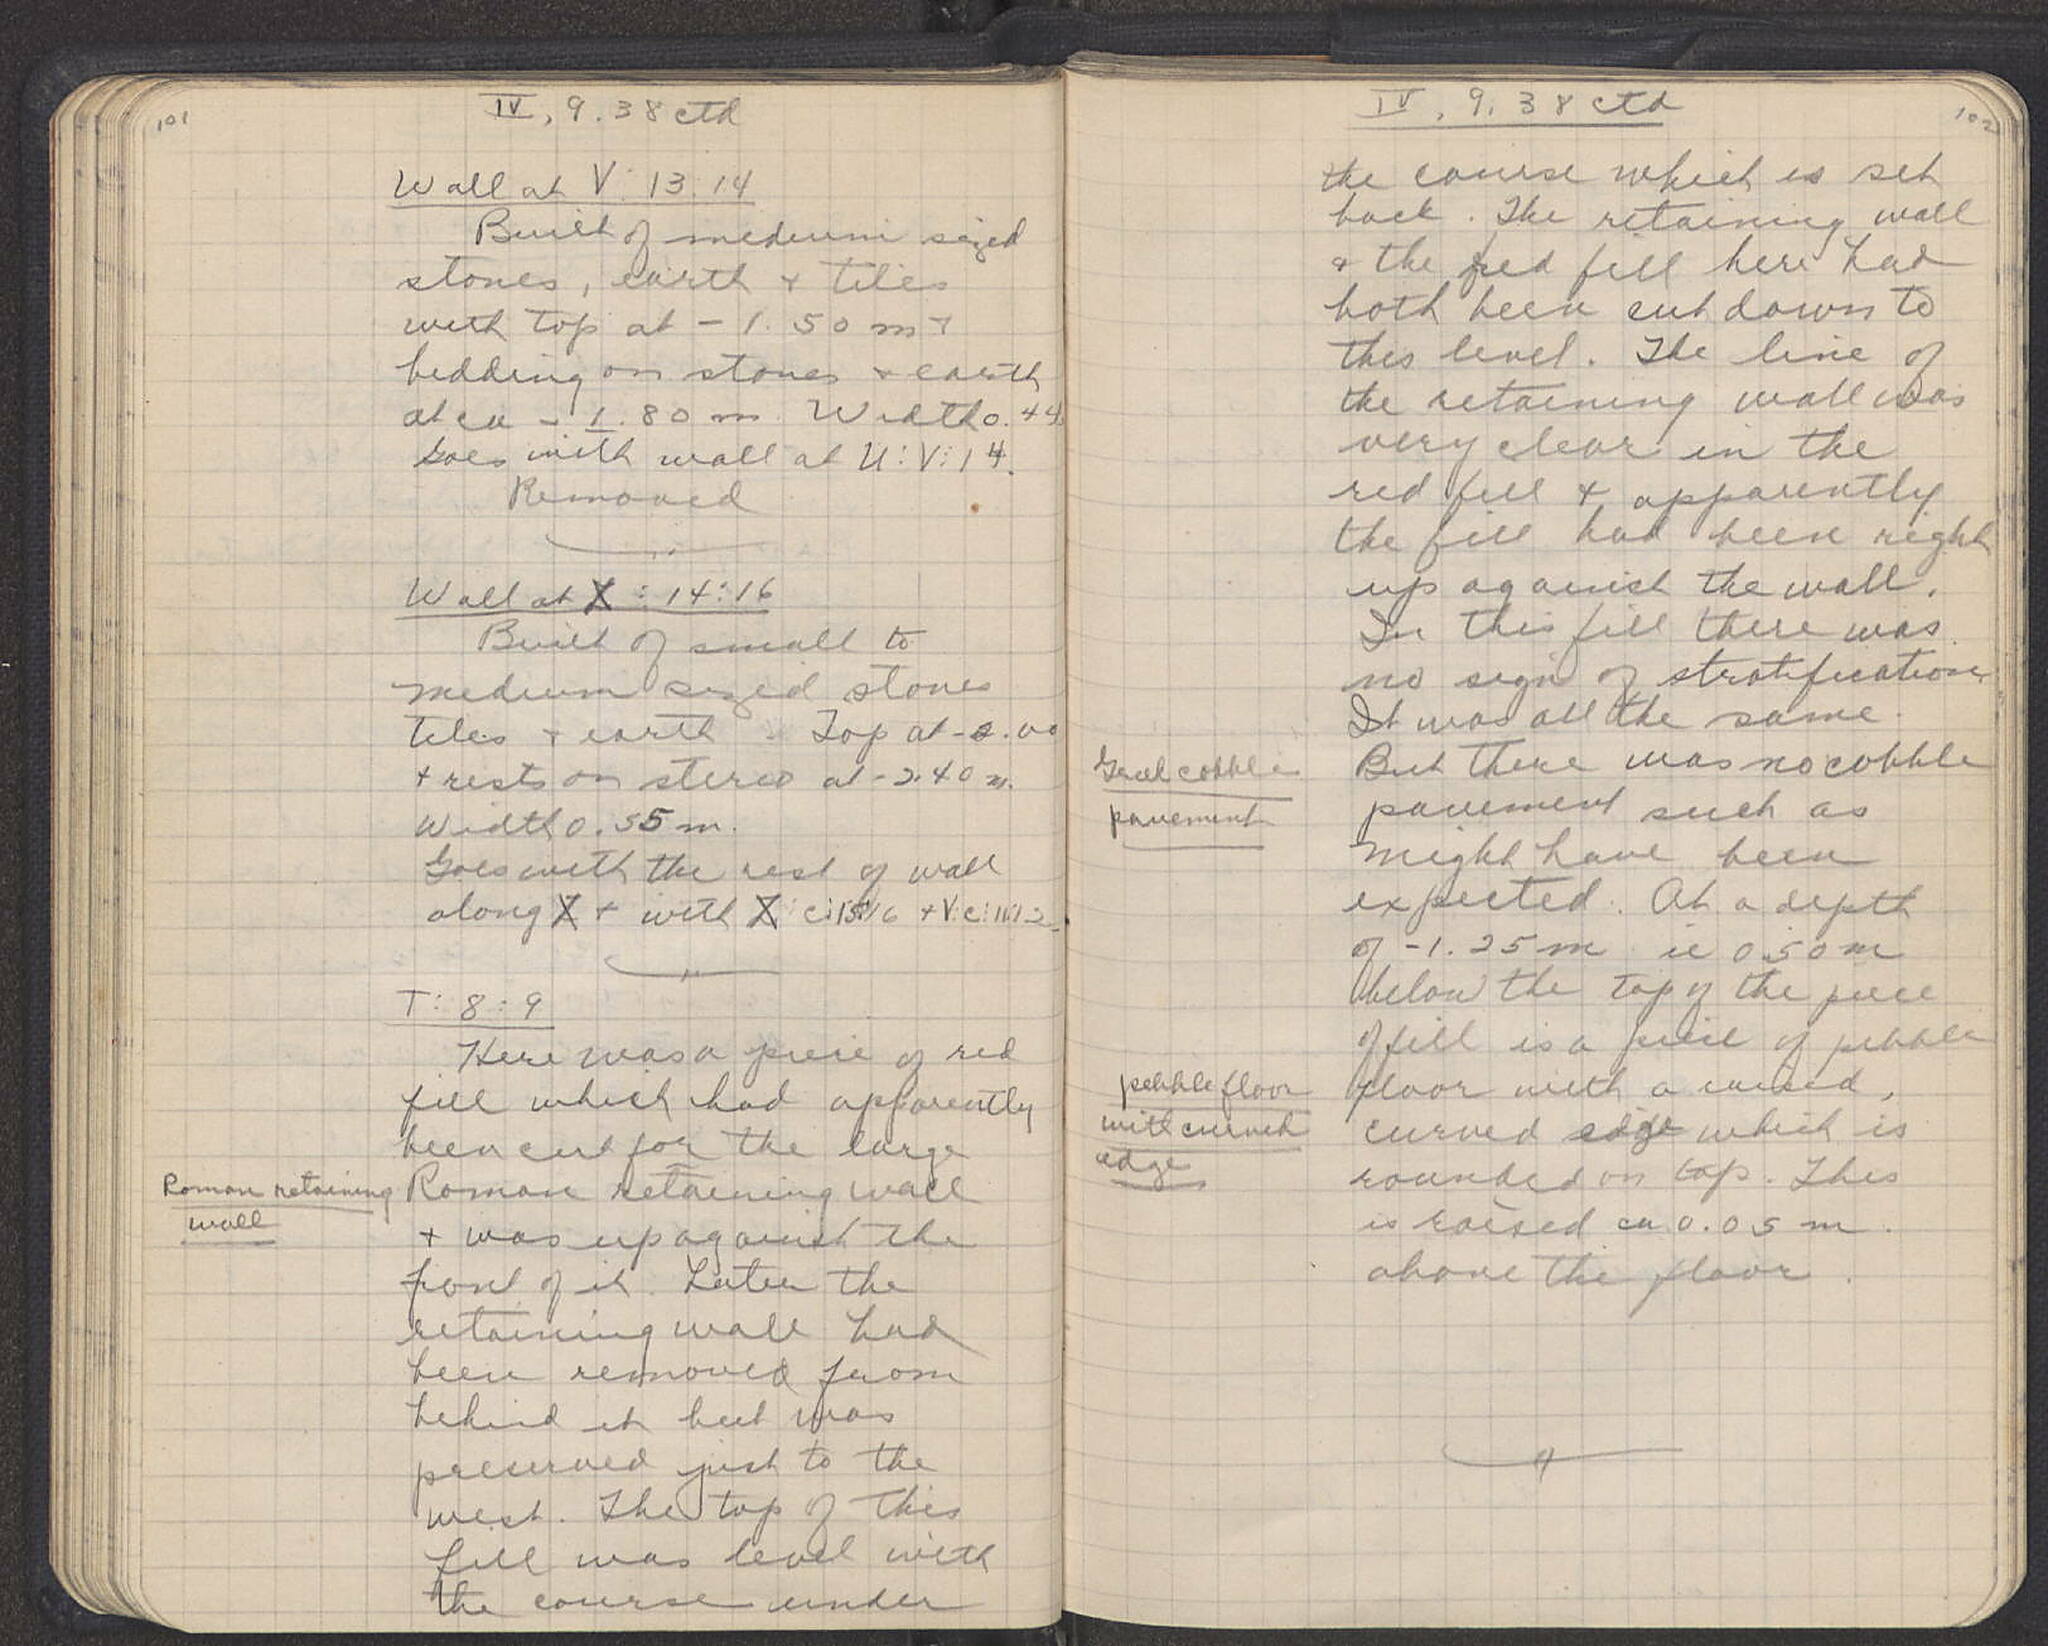 101
IV, 9. 38 ctd
Wall at V: 13:14
Built of medium sized
stones, earth + tiles
with top at - 1.50 m +
bedding on stones + earth
at ca - 1.80 m. Width 0.44
Goes with wall at U:V:14.
Removed
Wall at X: 14:16
Built of small to
medium sized stones
tiles + earth - Top at -2.00
+ rests on stereo at -2.40 m.
Width 0.55 m.
Goes with the rest of wall
along X + with X: C:15:16 + V:C:11:12
T: 8:9
Here was a piece of red
fill which had apparently
been cut for the large
Roman retaining
wall
Roman retaining wall
+ was up against the
front of it. Later the
retaining wall had
been removed from
behind it but was
preserved just to the
west. The top of this
fill was level with
the course under
102
IV, 9. 38 ctd
the course which is set
back. The retaining wall
+ the red fill here had
both been cut down to
this level. The line of
the retaining wall was
very clear in the
red fill + apparently
the fill had been right
up against the wall.
In this fill there was
no sign of stratification
It was all the same.
cobble
pavement
But there was no cobble
pavement such as
might have been
expected. At a depth
of -1.25 m ie 0.50 m
below the top of the piece
of fill is a piece of pebble
pebble floor
with curved
edge
floor with a raised,
curved edge which is
rounded on top. This
is raised ca 0.05 m.
above the floor.